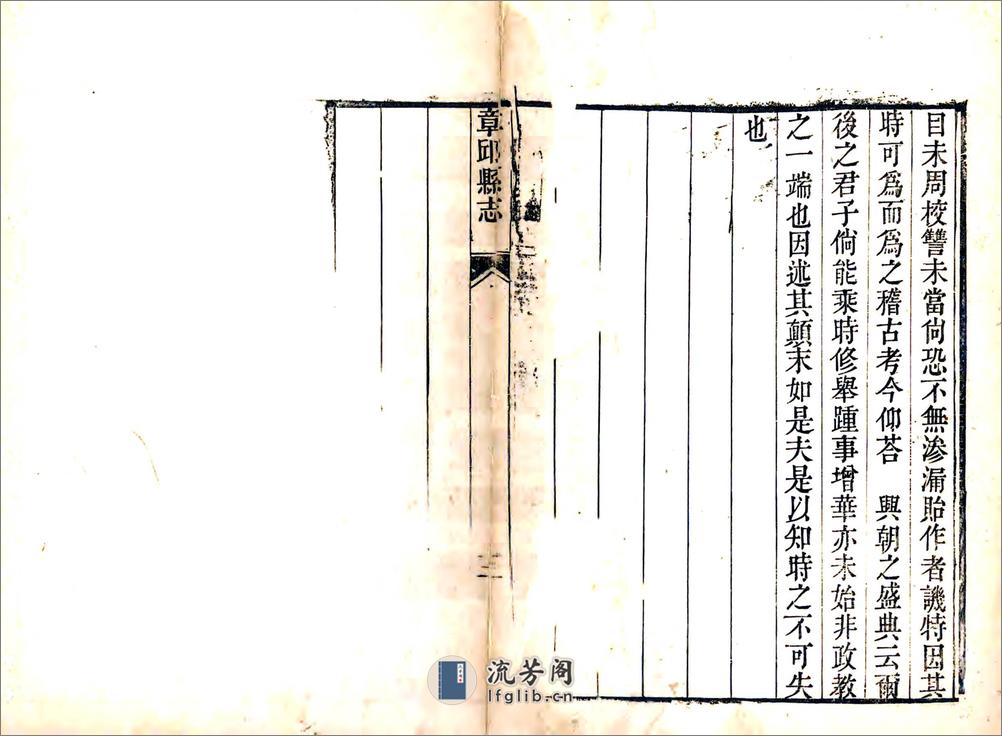 目未周校讐未當尙恐不無滲漏貽作者譏特因其
時可爲而爲之稽古考今仰荅　興朝之盛典云爾
後之君子倘能乘時修舉踵事增華亦未始非政教
之一端也因述其顛末如是夫是以知時之不可失
也
章邱縣志
流芳阁
lfglib.cn